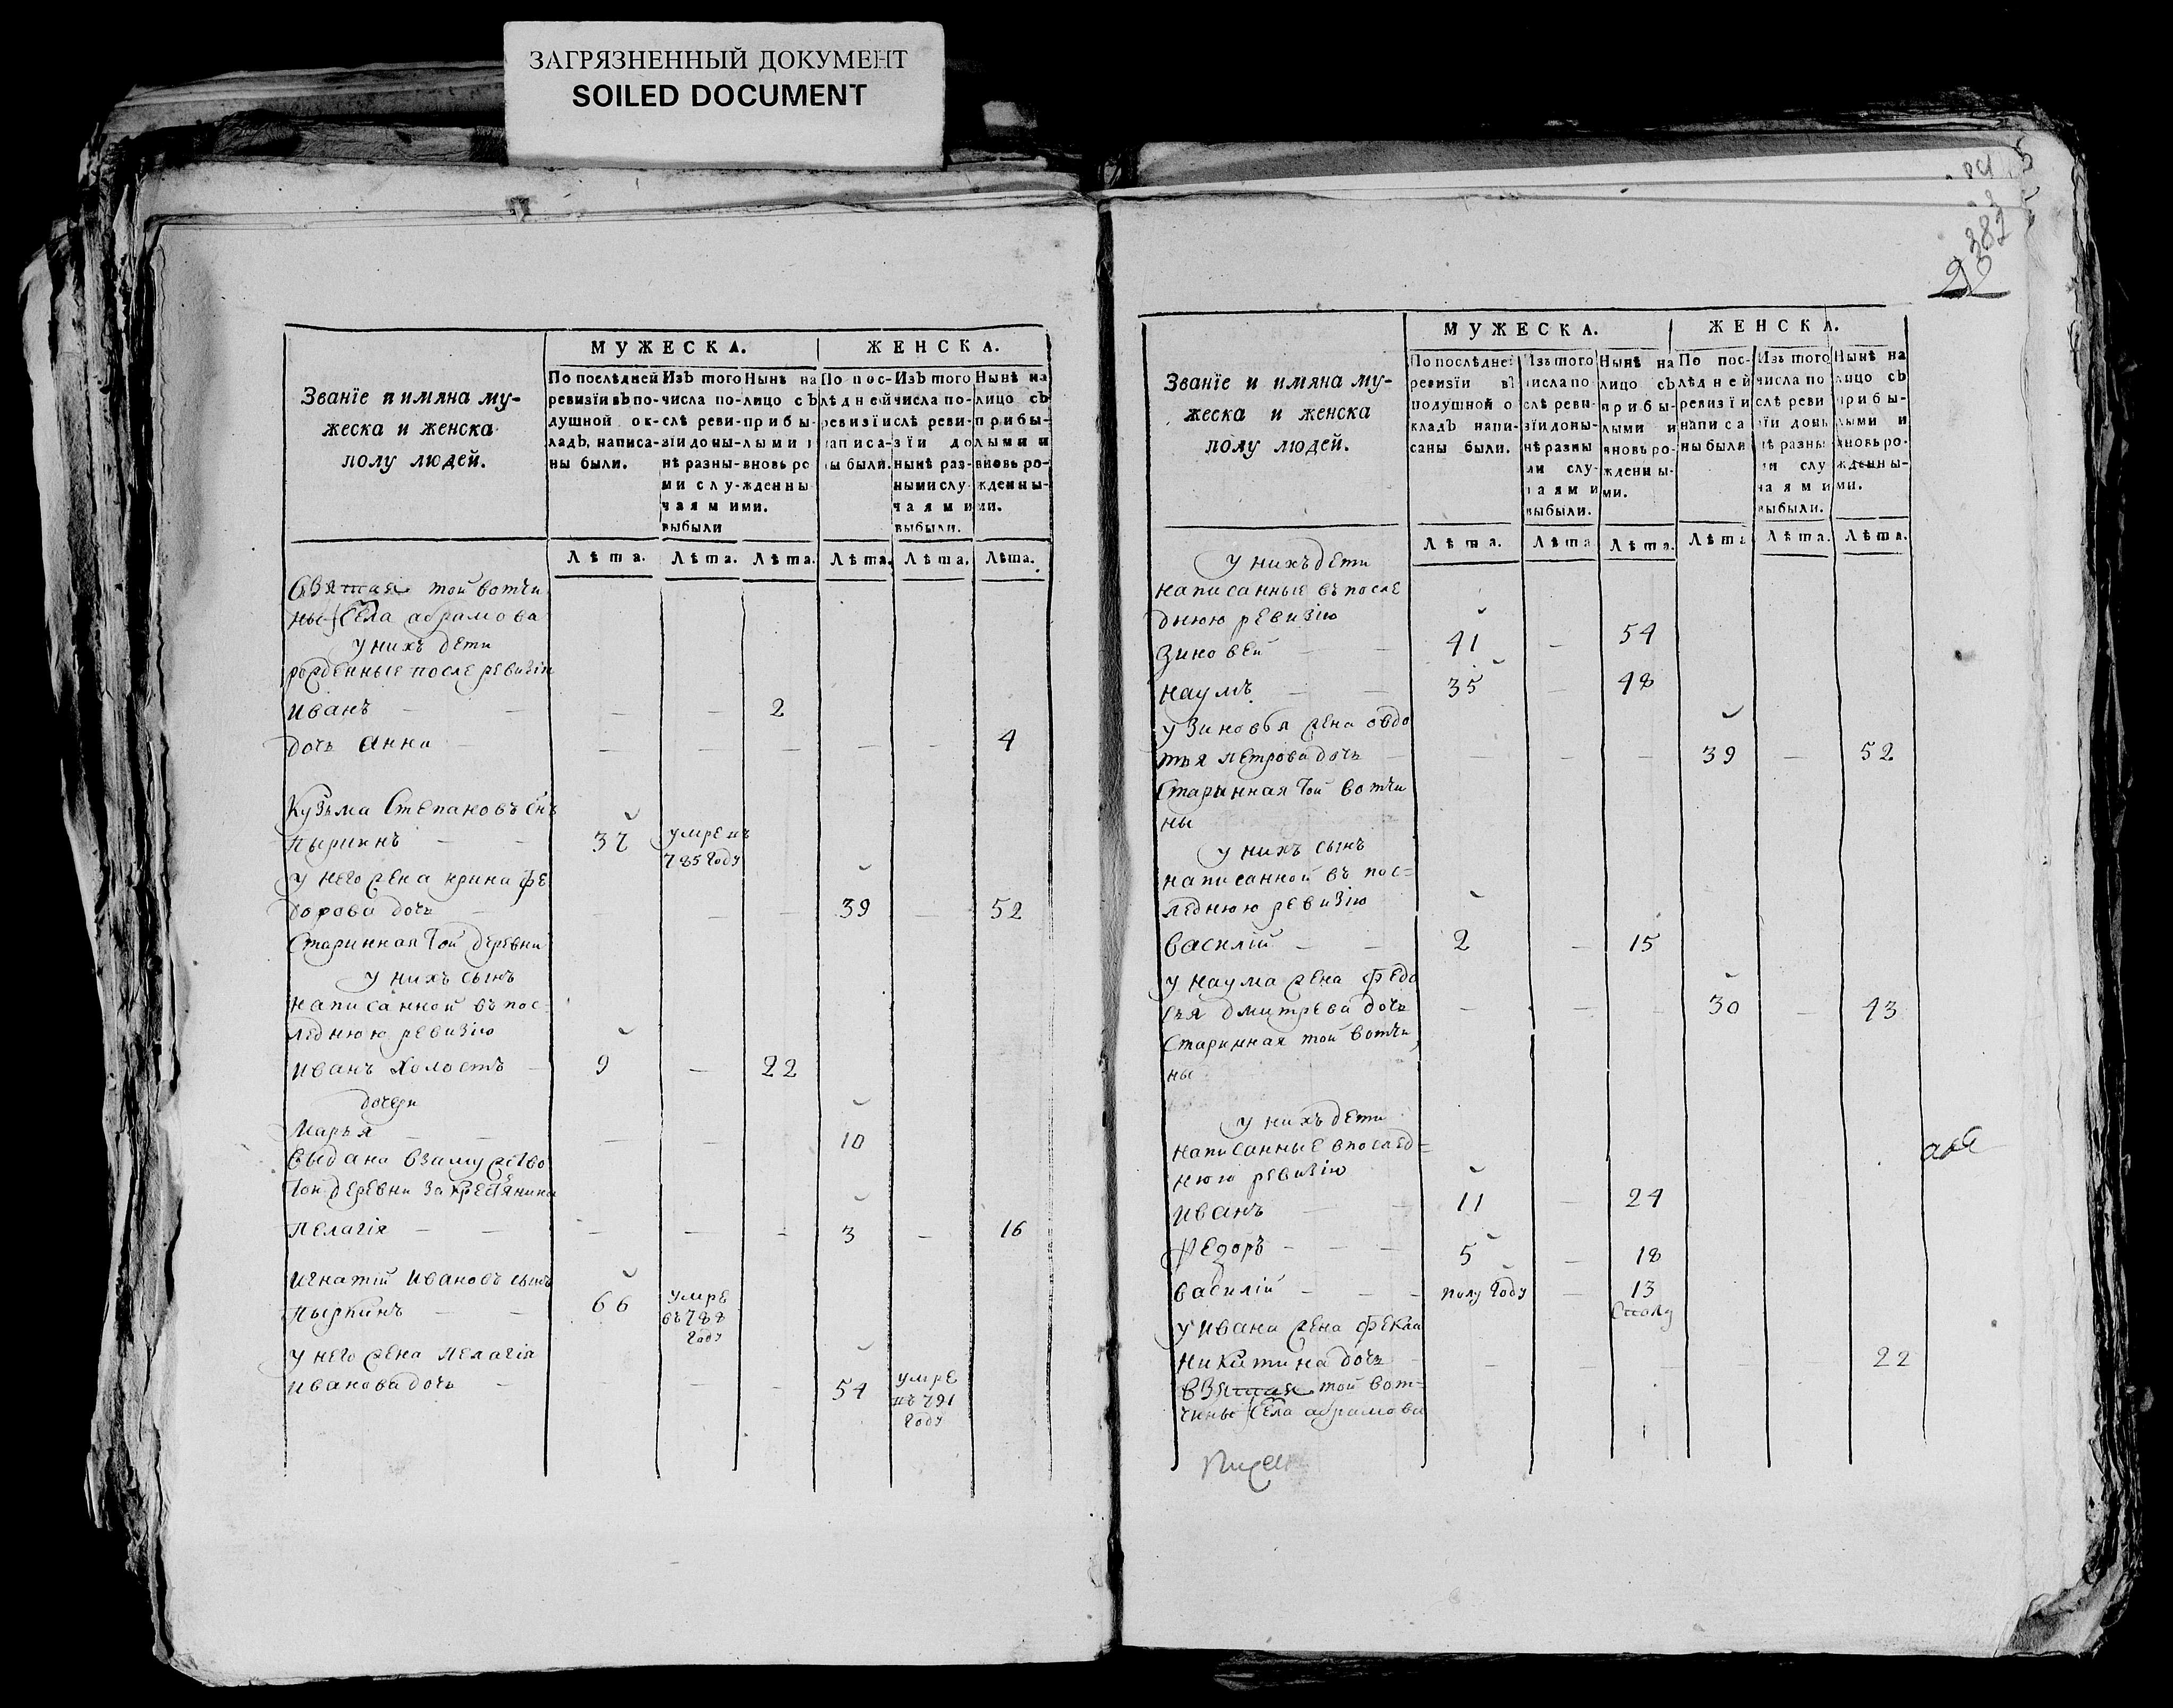 ЗАГРЯЗНЕННЫЙ ДОКУМЕНТ
SOILED DOCUMENT
Званїе и имяна му-
жеска и женска
полу людей.
МУЖЕСКА.
ЖЕНСКА.
По послѣдней
ревизїи въ по-
душной ок-
ладъ, написа-
ны были.
Изъ того
числа по-
слѣ реви-
зїи доны-
нѣ разны-
ми слу-
чаями
выбыли
Нынѣ на
лицо съ
прибы-
лыми и
вновь ро
жденны
ми.
По пос-
лѣдней
ревизїи
написа-
ны были.
Изъ того
числа по-
слѣ реви-
зїи до
нынѣ раз-
ными слу
чаями
выбыли.
Нынѣ на
лицо съ
прибы-
лыми и
вновь ро-
жденны-
ми.
Лѣта. Лѣта. Лѣта. Лѣта. Лѣта. Лѣта.
взятая той вотчи
ны села абрамова
у нихъ дети
рожденные после ревизiи
иванъ — — — — 2
дочь анна — — — — — — 4
Кузьма Степановъ снъ
пыркинъ — — 37 умре въ
785 году
у него жена ирина фе
дорова дочь — — — 39 — 52
Старинная той деревни
у нихъ сынъ
написанной въ пос-
леднюю ревизiю
иванъ холостъ — 9 — 22
дочери
Марья — — — — 10
выдана взамужство
той деревни за крестянина
пелагiя — — — — — 3 — 16
игнатiй ивановъ сынъ
пыркинъ — — 66 умре
въ 788
году
у него жена пелагiя
иванова дочь — — — — 54 умре
въ 791
году
382
22
Званїе и имяна му-
жеска и женска
полу людей.
МУЖЕСКА.
ЖЕНСКА.
По послѣдней
ревизїи въ
подушной о
кладъ напи-
саны были.
Изъ того
числа по
слѣ реви-
зїи доны-
нѣ разны
ми слу-
чаями
выбыли.
Нынѣ на
лицо съ
прибы-
лыми и
вновь ро-
жденны-
ми.
По пос-
лѣдней
ревизїи
написа
ны были
Изъ того
числа по
слѣ реви
зїи доны
нѣ разны
ми слу
чаями
выбыли.
Нынѣ на
лицо съ
прибы-
лыми и
вновь ро-
жденны-
ми.
Лѣта. Лѣта Лѣта. Лѣта Лѣта. Лѣта.
у нихъ дети
написанные въ после
днюю ревизiю
зиновей — — 41 — 54
наумъ — — 35 — 48
у зиновья жена овдо
тья петрова дочь — — — — 39 — 52
Старинная той вотчи
ны
у нихъ сынъ
написанной въ пос=
леднюю ревизiю
василiй — — 2 — 15
у наума жена федо
сья дмитрева дочь — — — 30 — 43
Старинная той вотчи
ны
у нихъ дети
написанные в послед=
нюю ревизiю
иванъ — — 11 — 24
федоръ — — — 5 — 18
василiй — — — полу году — 13
Споло
у ивана жена фекла
никитина дочь — — — — — — 22
взятая той вот-
чины села абрамова